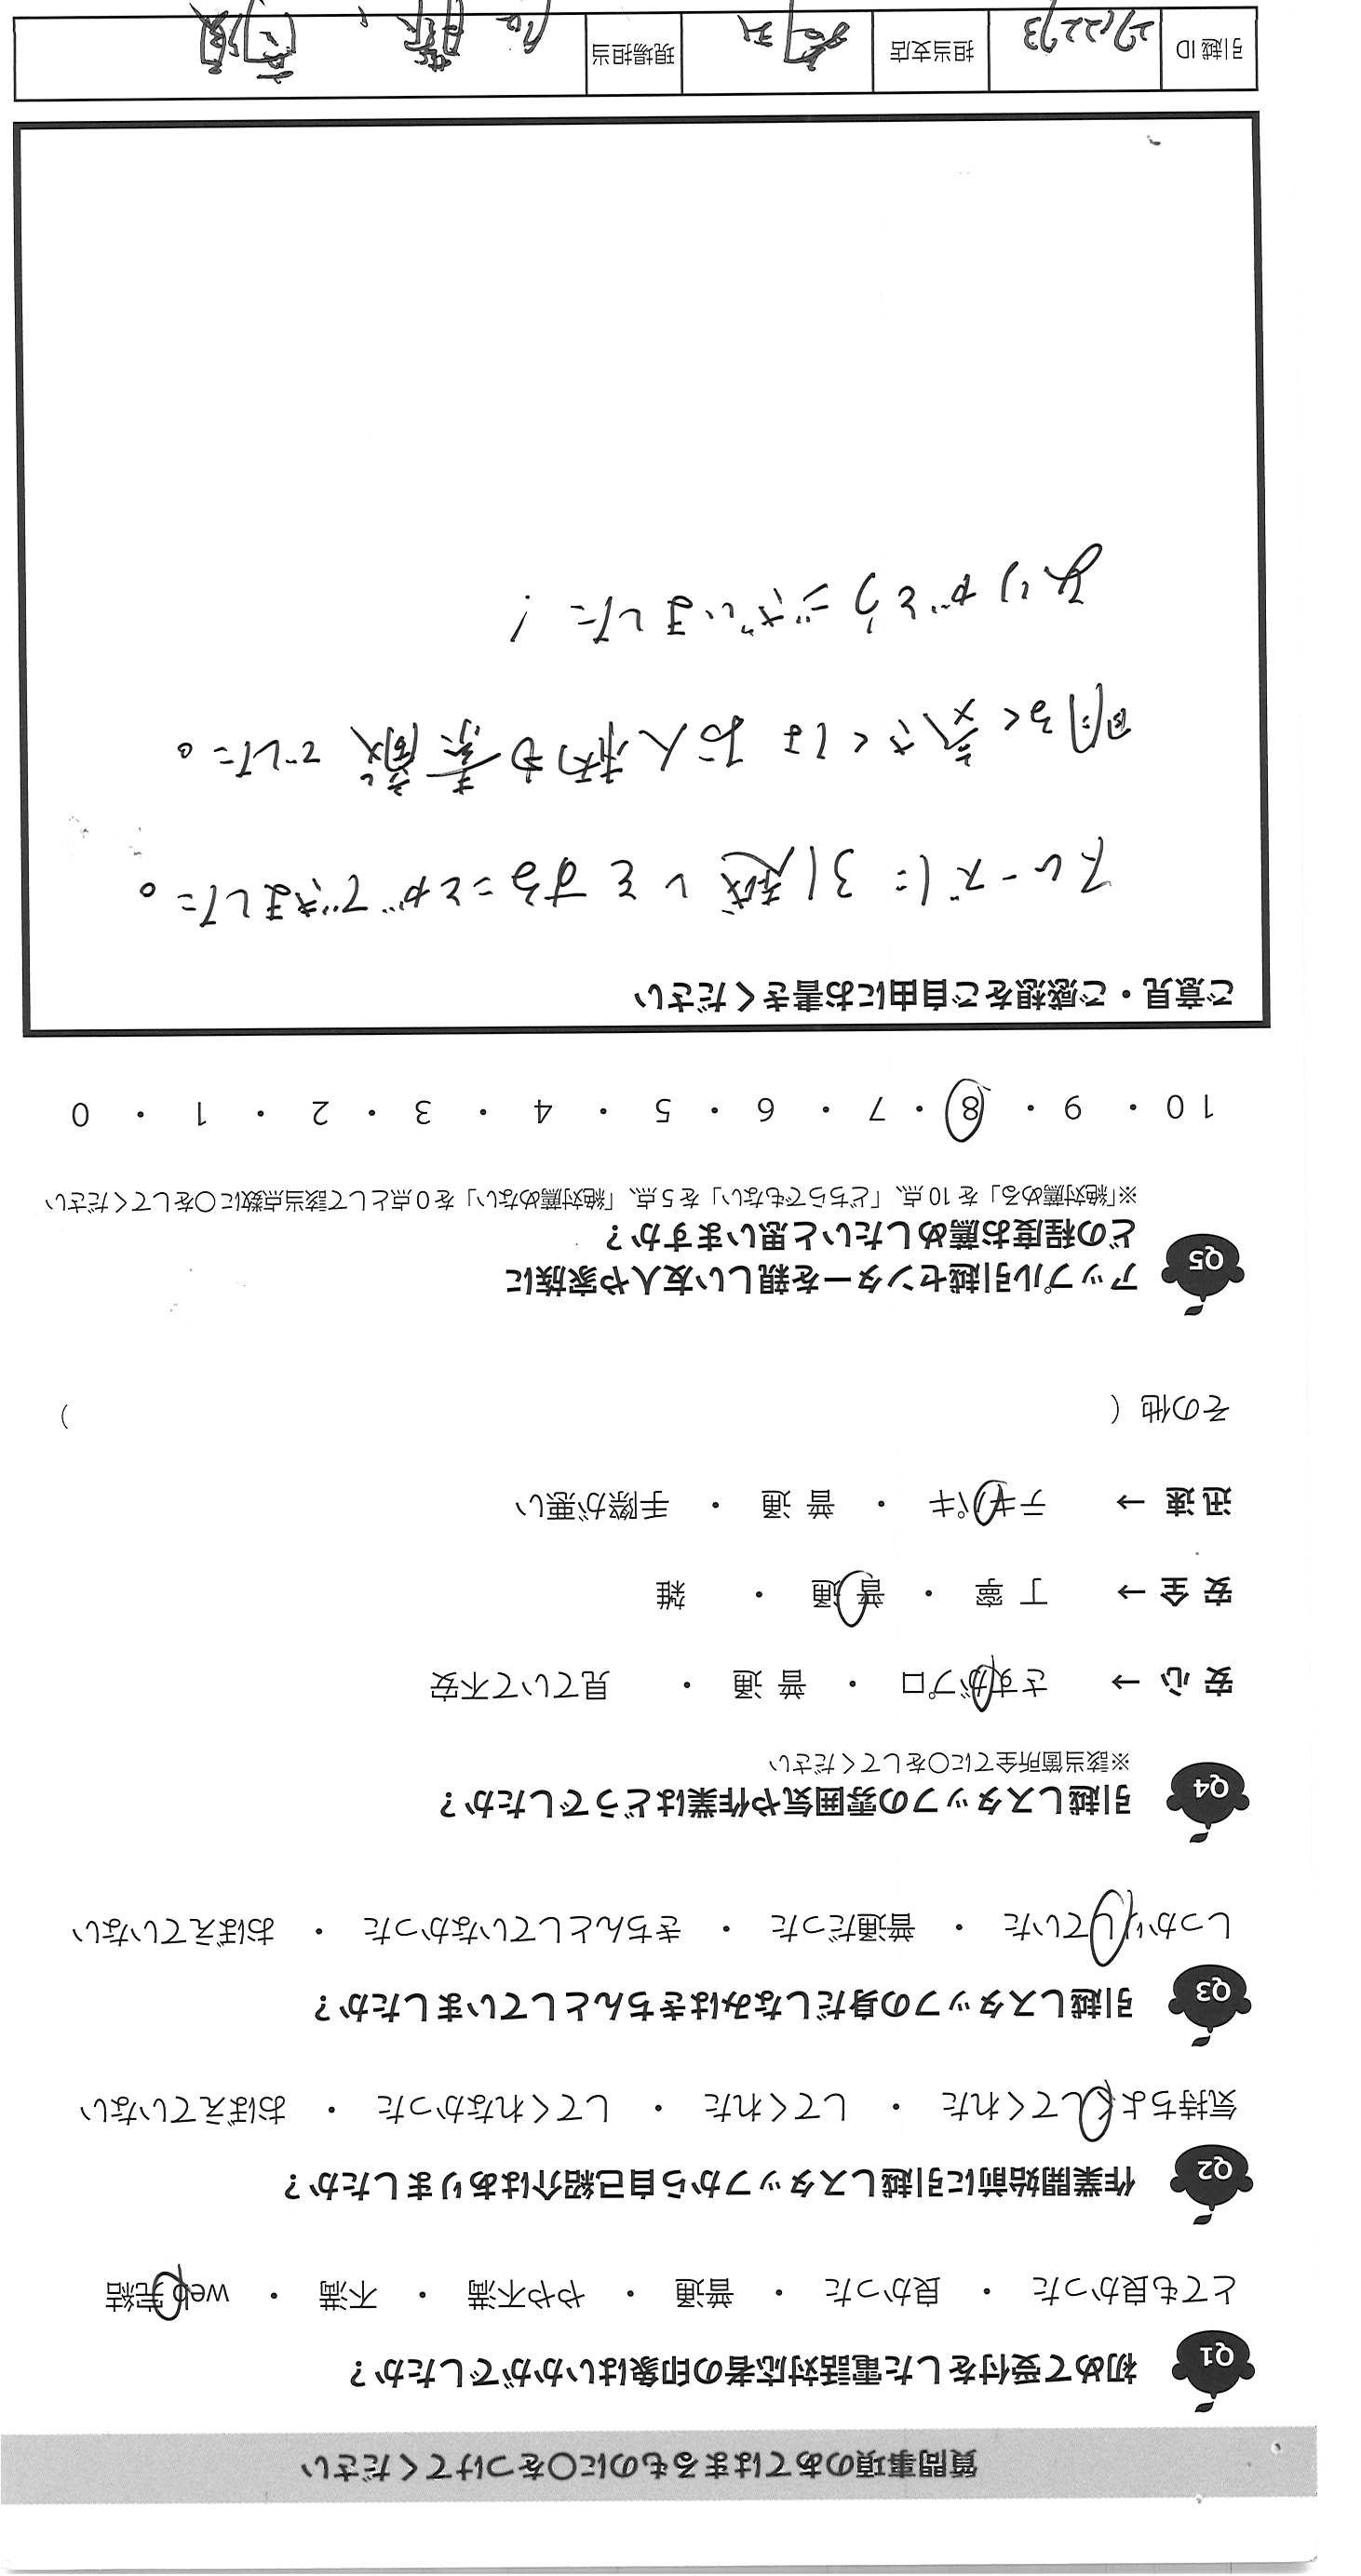 質問事項のあてはまるものに○をつけてください
Q1 初めて受付をした電話対応者の印象はいかがでしたか？
とても良かった ・ 良かった ・ 普通 ・ やや不満 ・ 不満 ・ web完結
Q2 作業開始前に引越しスタッフから自己紹介はありましたか？
気持ちよくしてくれた ・ してくれた ・ してくれなかった ・ おぼえていない
Q3 引越しスタッフの身だしなみはきちんとしていましたか？
しっかりしていた ・ 普通だった ・ きちんとしていなかった ・ おぼえていない
Q4 引越しスタッフの雰囲気や作業はどうでしたか？
※該当箇所全てに○をしてください
安心 → さすがプロ ・ 普通 ・ 見ていて不安
安全 → 丁寧 ・ 普通 ・ 雑
迅速 → テキパキ ・ 普通 ・ 手際が悪い
その他（ ）
Q5 アップル引越センターを親しい友人や家族に
どの程度お薦めしたいと思いますか？
※「絶対薦める」を10点、「どちらでもない」を5点、「絶対薦めない」を0点として該当点数に○をしてください
10 ・ 9 ・ 8 ・ 7 ・ 6 ・ 5 ・ 4 ・ 3 ・ 2 ・ 1 ・ 0
ご意見・ご感想をご自由にお書きください
スムーズに引越しをすることができました。
明るく気さくなお人柄も素敵でした。
ありがとうございました！
引越ID 担当支店 現場担当